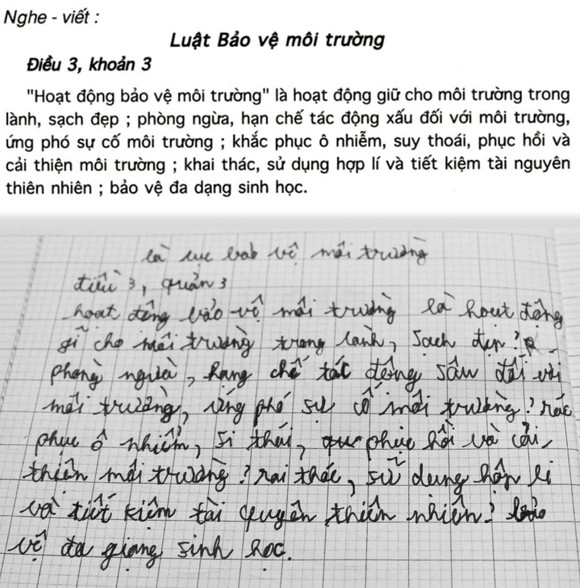 Nghe - viết :
Luật Bảo vệ môi trường
Điều 3, khoản 3
"Hoạt động bảo vệ môi trường" là hoạt động giữ cho môi trường trong
lành, sạch đẹp ; phòng ngừa, hạn chế tác động xấu đối với môi trường,
ứng phó sự cố môi trường ; khắc phục ô nhiễm, suy thoái, phục hồi và
cải thiện môi trường ; khai thác, sử dụng hợp lí và tiết kiệm tài nguyên
thiên nhiên ; bảo vệ đa dạng sinh học.
là lục bab vệ mối trường
tiều 3, quản 3
hoat động bảo vệ mối trường là hoạt động
gĩ cho mối trường trong lanh, sach đẹp ?
phong ngừa, hang chế tác động sâu đối với
mối trường, ứng phó sự cố mối trường ? rác
phuc ô nhiểm, si thái, phục hồi và cải
thiện mối trường ? rai thác, sử dung hôp li
và tiết kiệm tài quyên thiên nhiên ? bảo
vệ đa giạng sinh học.